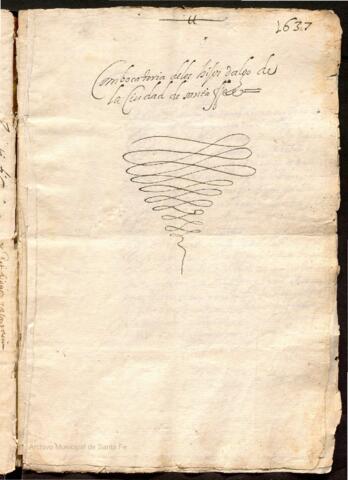 1637
Combocatoria delos hijos dalgo de
la Ciudad de santa ffee
Archivo Municipal de Santa Fe